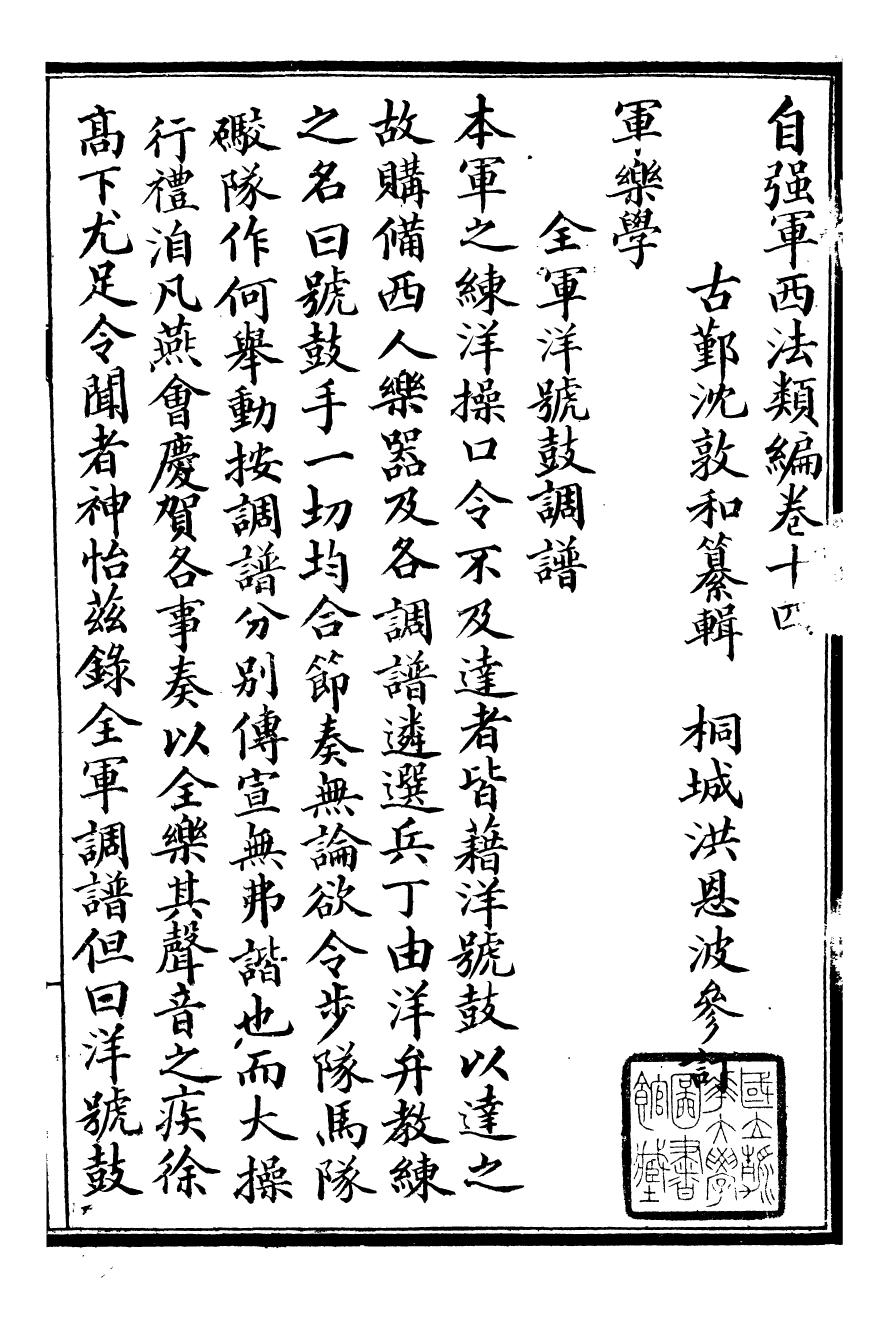 自强軍西法類編卷十四
古鄞沈敦和纂輯　桐城洪恩波參訂
軍樂學
全軍洋號鼓調譜
本軍之練洋操口令不及達者皆藉洋號鼓以達之
故購備西人樂器及各調譜遴選兵丁由洋弁教練
之名曰號鼓手一切均合節奏無論欲令步隊馬隊
礮隊作何舉動按調譜分別傳宣無弗諧也而大操
行禮洎凡燕會慶賀各事奏以全樂其聲音之疾徐
高下尤足令聞者神怡茲錄全軍調譜但曰洋號鼓
國立清華大學圖書館藏